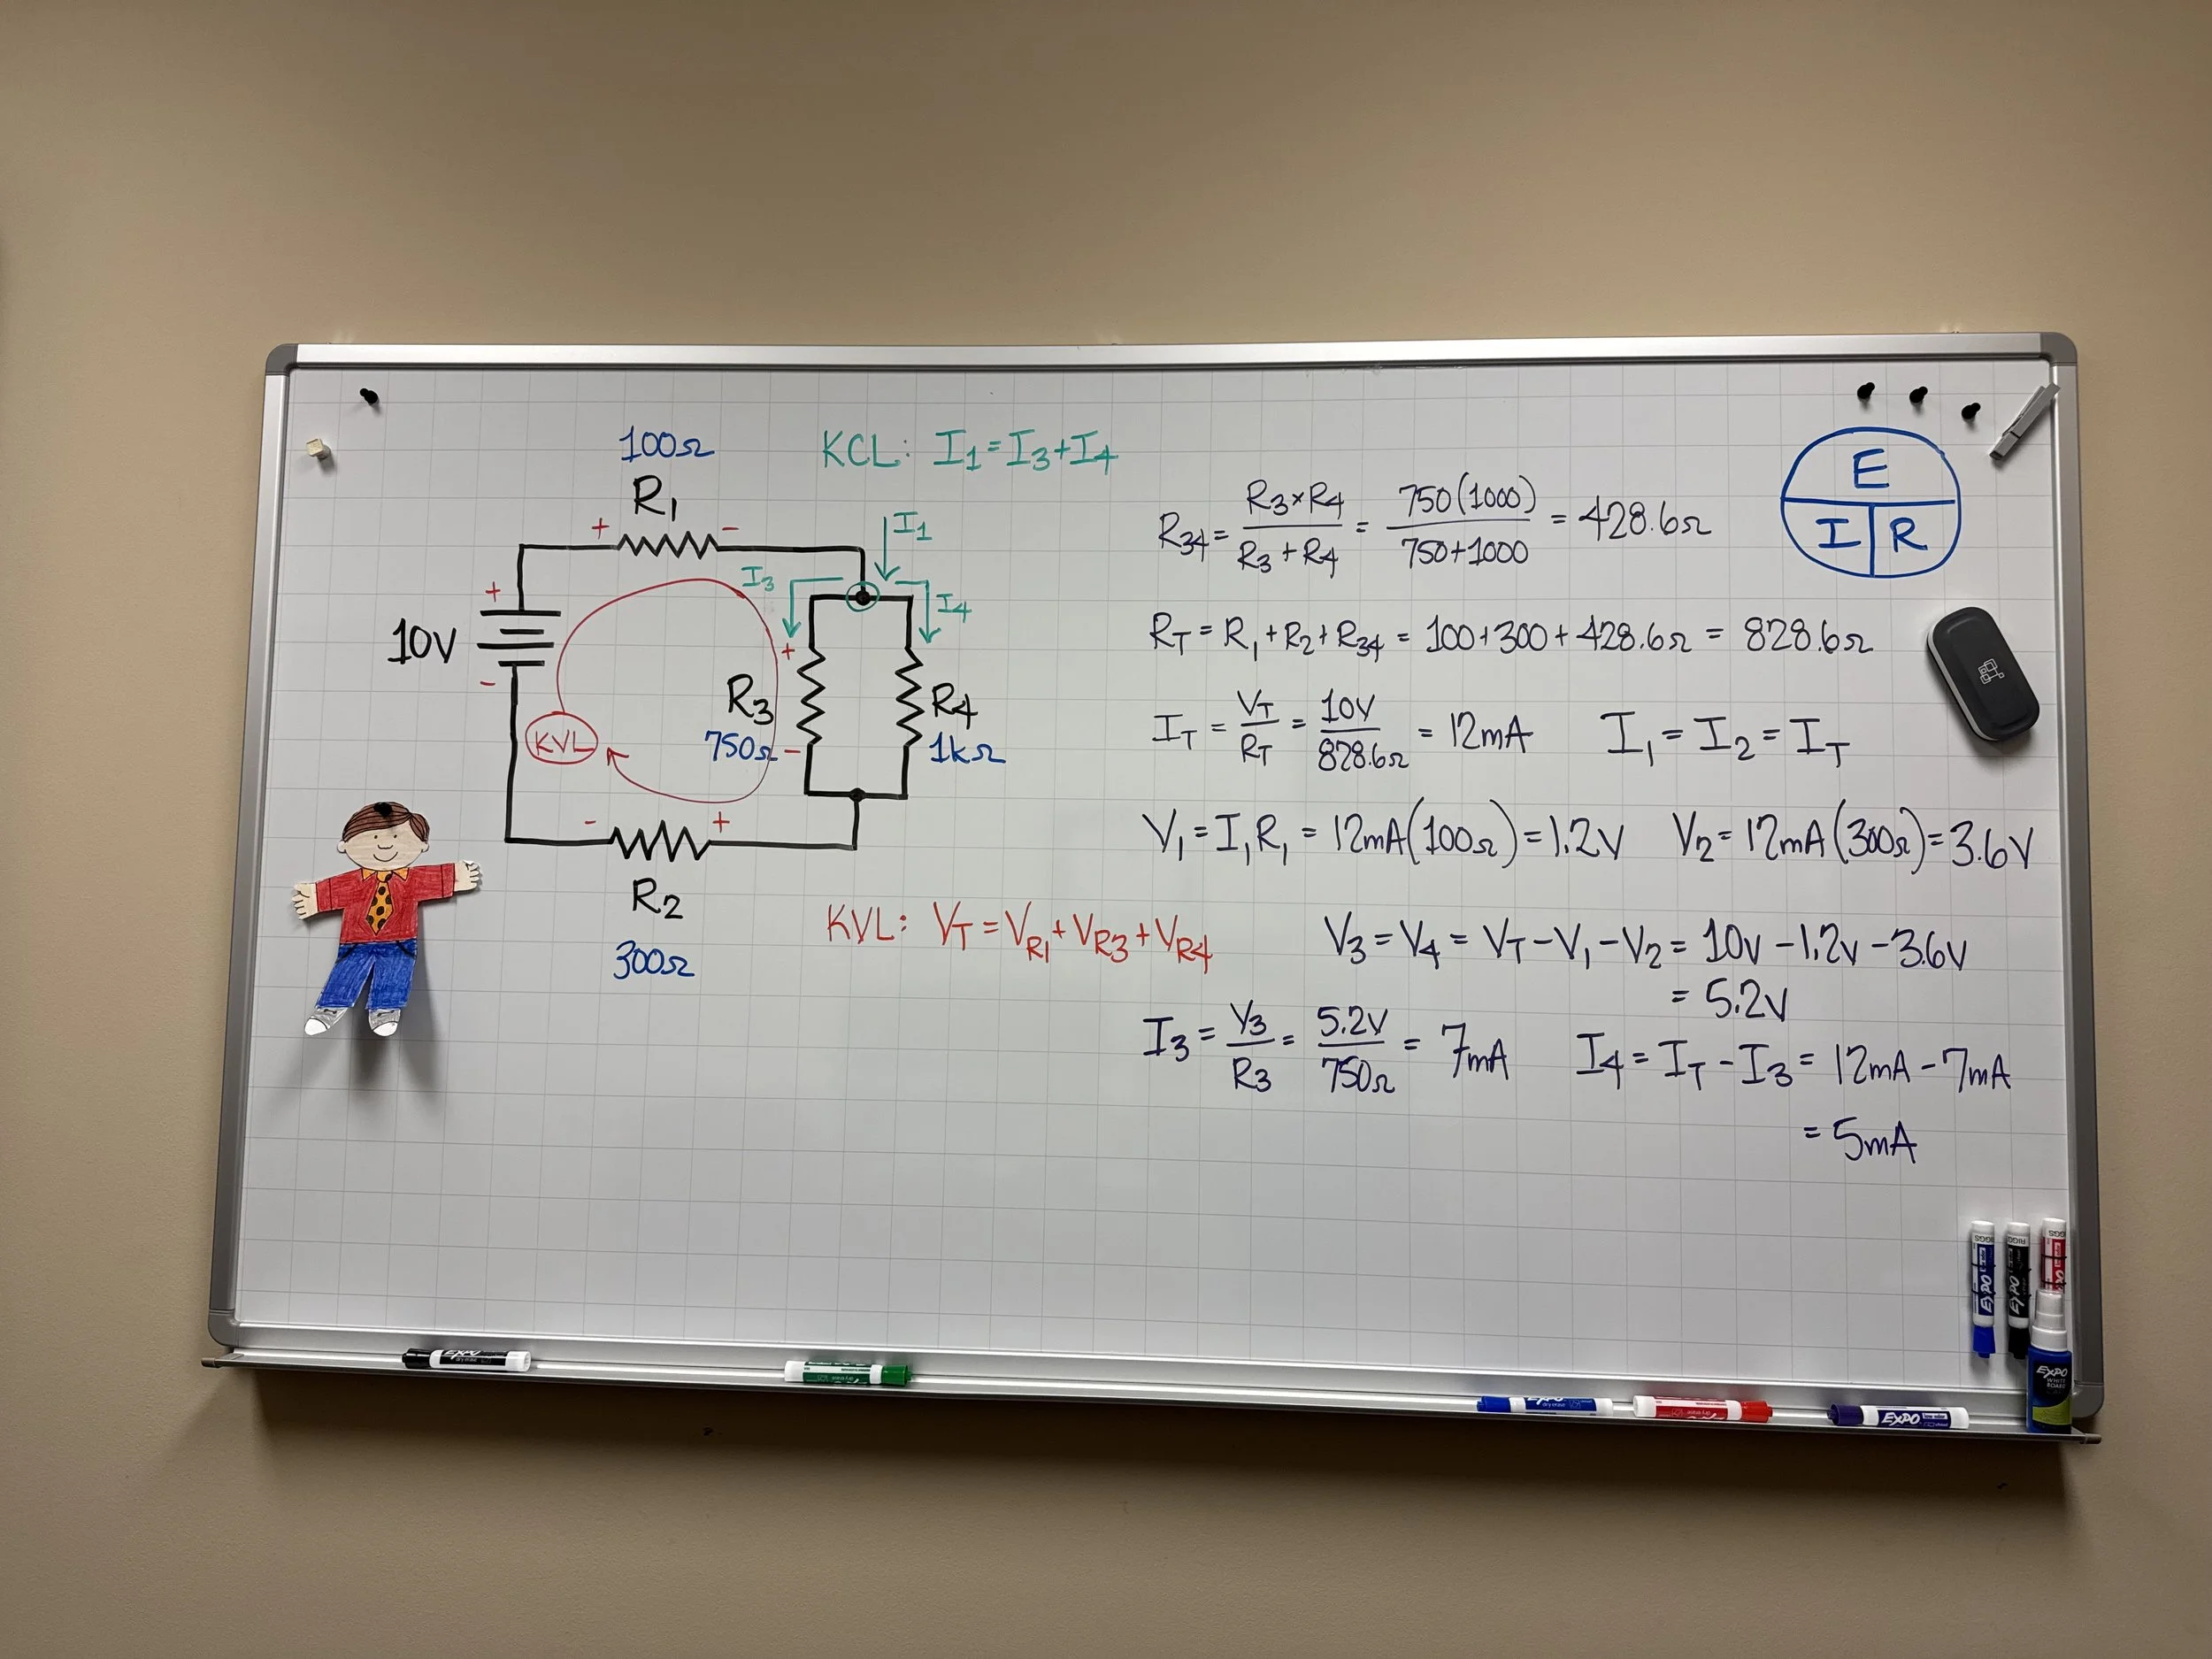 100Ω
R₁
+ -
KCL: I₁=I₃+I₄
I₁
I₃
I₄
10V
+
-
KVL
R₃
750Ω
+
-
R₄
1kΩ
- +
R₂
300Ω
KVL: V_T = V_R1 + V_R3 + V_R4
R₃₄ = (R₃×R₄)/(R₃+R₄) = 750(1000)/(750+1000) = 428.6Ω
E
I R
R_T = R₁ + R₂ + R₃₄ = 100+300+428.6Ω = 828.6Ω
I_T = V_T/R_T = 10V/828.6Ω = 12mA I₁ = I₂ = I_T
V₁ = I₁R₁ = 12mA(100Ω) = 1.2V V₂ = 12mA(300Ω) = 3.6V
V₃ = V₄ = V_T - V₁ - V₂ = 10V - 1.2V - 3.6V
= 5.2V
I₃ = V₃/R₃ = 5.2V/750Ω = 7mA I₄ = I_T - I₃ = 12mA - 7mA
= 5mA
EXPO
EXPO
EXPO
WHITE
BOARD
EXPO
dry erase
EXPO
dry erase
EXPO